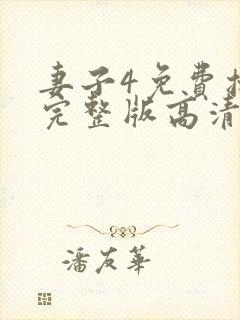 妻子4免费
完整版高清
潘友华